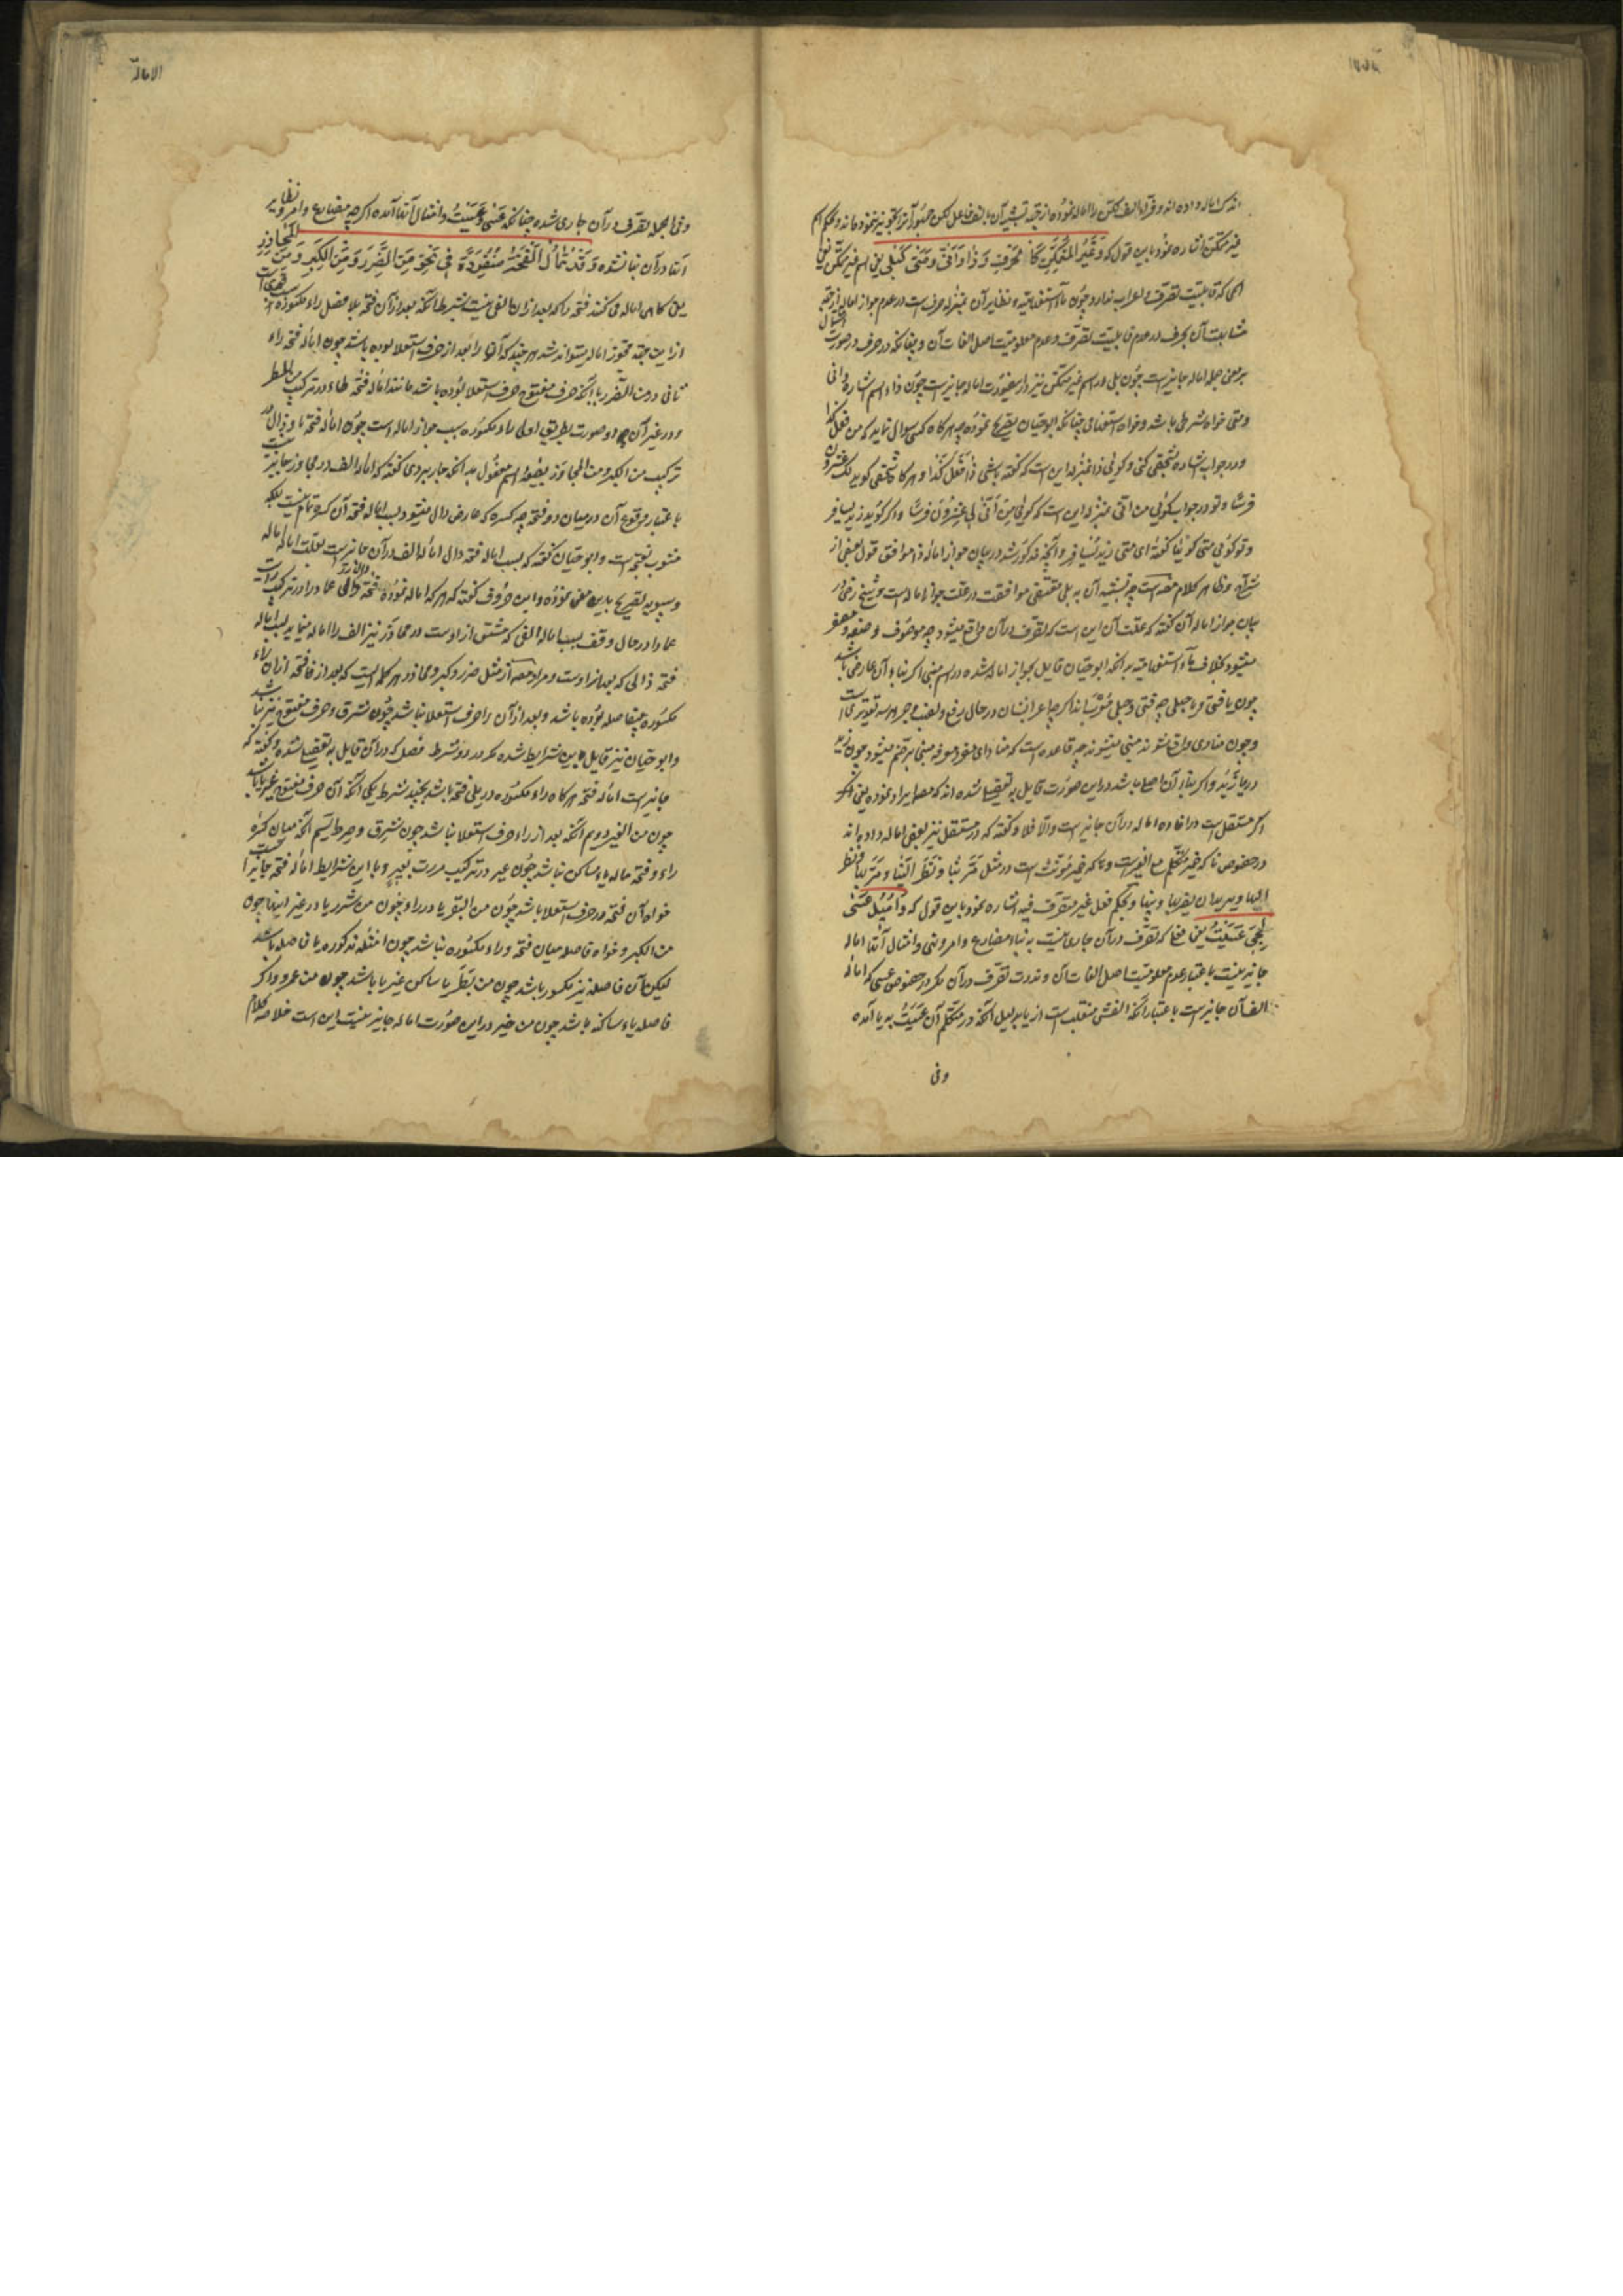 الاماله
اندک اماله داده اند و قرا با الف لکن را اماله نموده از جهة تشبیه آن بالف فاعل لکن جمهور آنرا تجویز ننموده اند و بحکم اسم
غیر متمکن اشاره نمود باین قول که وَغَیْرُ المُتَمَکِّنِ کَالحَرْفِ وَذَا وَأَنّٰی وَمَتٰی کَبَلٰی یعنی اسم غیر متمکن یعنی
اسمی که قابلیت تصرف و اعراب ندارد چون ما استفهامیه و نظایر آن بمنزله حرف است در عدم جواز اماله از جهة
مشابهت آن بحرف در عدم قابلیت تصرف و عدم معلومیت اصل الفات آن و چنانکه در حرف در صورت
جمله اماله جایز است چون بلی در اسم غیر متمکن نیز در اماله جایز است چون ذا اسم اشاره و انی
و متی خواه شرطی باشد و خواه استفهامی چنانکه ابوحیان تصریح نموده چه هرگاه کسی سؤال نماید که من فعل کذا
و در جواب اشاره کنی و گوئی ذا بمنزله این است که گفته باشی ذَا فَعَلَ کَذَا و هرگاه شخصی گوید لک عشرون
فرسًا و تو در جواب گوئی من انی بمنزله این است که گوئی مِنْ أَنّٰی لِی عِشْرُونَ فَرَسًا و اگر گوید زید یسافر
و تو گوئی متی گویا گفته ای متی زیدٌ یُسَافِرُ و آنچه مذکور شد در بیان جواز اماله ذا موافق قول بعضی از
شراح و ظاهر کلام مصـ است چه تشبیه آن به بلی مقتضی موافقت در علت جواز اماله است و شیخ رضی در
بیان جواز اماله آن گفته که علت آن این است که تصرف در آن واقع میشود چه موصوف و صفه و مصغر
میشود بخلاف ما استفهامیه بدانکه ابوحیان قایل بجواز اماله شده در اسم مبنی اگر بناء آن عارضی باشد
چون یا فتی و یا حبلی چه فتی و حبلی مُعْرَب اند اگرچه اعراب ایشان در حال رفع و نصب و جر هر سه تقدیری است
و چون منادی واقع شوند مبنی میشوند چه قاعده است که منادای مفرد معرفه مبنی بر ضم میشود چون زید
در یا زَیْدُ و اگر بناء آن اصلی باشد در این صورت قایل به تفصیل شده اند که مصـ ایراد نموده یعنی اگر
اگر مستقل است در افاده اماله در آن جایز است والّا فلا و گفته که در مستقل نیز بعضی اماله داده اند
در خصوص نا که ضمیر متکلم مع الغیر است و ها که ضمیر مؤنث است در مثل مَرَّ بِنَا وَنَظَرَ اِلَیْنَا وَ مَرَّ بِهَا وَنَظَرَ
اِلَیْهَا و یرید ان یضربها و بینها و بحکم فعل غیر متصرف فیه اشاره نمود باین قول که وَأُمِیلَ عَسٰی
لِمَجِیءِ عَسَیْتُ یعنی فعلی که تصرف در آن جاری نیست به بناء مضارع و امر و نهی و امثال آنها اماله
جایز نیست باعتبار عدم معلومیت اصل الفات آن و ندرت تصرف در آن مگر در خصوص عسی که اماله
الف آن جایز است باعتبار آنکه الفش منقلب است از یا بدلیل آنکه در متکلم آن عَسَیْتُ به یا آمده
وفی
الاماله
وفی الجمله تصرف در آن جاری شده چنانکه عَسٰی و عَسَیْتُ و امثال آنها آمده اگرچه مضارع و امر و نظایر
آنها در آن بنا نشده وَقَدْ تُمَالُ الفَتْحَةُ مُنْفَرِدَةً فِی نَحْوِ مِنَ الضَّرَرِ وَمِنَ الکِبَرِ وَمِنَ المُحَاذِرِ
یعنی گاهی اماله می کنند فتحه را که بعد از آن الفی نیست بشرط آنکه بعد از آن فتحه بلا فصل راء مکسوره است
از این جهة مجوز اماله میتواند شد هرچند که آنها را بعد از حرف استعلا بوده باشد چون اماله فتحه راء
ثانی در من الضرر یا آنکه حرف مفتوح حرف استعلا بوده باشد مانند اماله فتحه طاء در ترکیب من المطر
و در غیر آن دو صورت بطریق اولی راء مکسوره سبب جواز اماله است چون اماله فتحه با و ذال در
ترکیب من الکبر و من المحاذر بصیغه اسم مفعول بدانکه جاربردی گفته که اماله الف در محاذر جایز نیست
باعتبار وقوع آن در میان دو فتحه چه کسره که عارض ذال میشود بسبب اماله فتحه آن کسره تام نیست بلکه
منسوب بفتحه است و ابوحیان گفته که بسبب اماله فتحه ذال اماله الف در آن جایز است بعلت اماله اماله
و سیبویه تصریح باین معنی نموده و ابن خروف گفته که هرکه اماله نموده فتحه دال عمادا را در ترکیب رایت
عمادا در حال وقف بسبب اماله الفی که مشتق از اوست در محاذر نیز الف را اماله مینماید بسبب اماله
فتحه ذالی که بعد از اوست و مراد مصـ از مثل ضرر و کبر و محاذر هر کلمه ایست که بعد از فتحه از آن راء
مکسوره بیفاصله بوده باشد و بعد از آن راء حرف استعلا نباشد چون شرق و حرف مفتوح نیز یا نباشد
و ابوحیان نیز قایل باین شرایط شده مگر در دو شرط فصل که در آن قایل به تفصیل شده و گفته که
جایز است اماله فتحه هرگاه راء مکسوره در یلی فتحه باشد بچند شرط یکی آنکه آن حرف مفتوح غیر یا باشد
چون من الغیر دوم آنکه بعد از راء حرف استعلا نباشد چون شرق و صراط سیم آنکه میان کسره
راء و فتحه ماله یاء ساکن نباشد چون عیر در ترکیب مررت بعیر و با این شرایط اماله فتحه جایز است
خواه آن فتحه در حرف استعلا باشد چون من البقر یا در راء چون من شرر یا در غیر اینها چون
من الکبر و خواه فاصله میان فتحه و راء مکسوره نباشد چون امثله مذکوره یا فاصله باشد
لیکن آن فاصله نیز مکسور باشد چون من بَطِرَ یا ساکن غیر یا باشد چون من عمرو و اگر
فاصله یاء ساکنه باشد چون من خیر در این صورت اماله جایز نیست این است خلاصه کلام